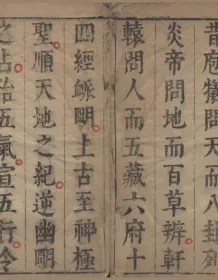 昔庖犧
炎帝問地而百草辨軒
轅問人而五藏六府十
四經明上古至神極
聖順天地之紀逆幽明
之占治五氣宣五行令